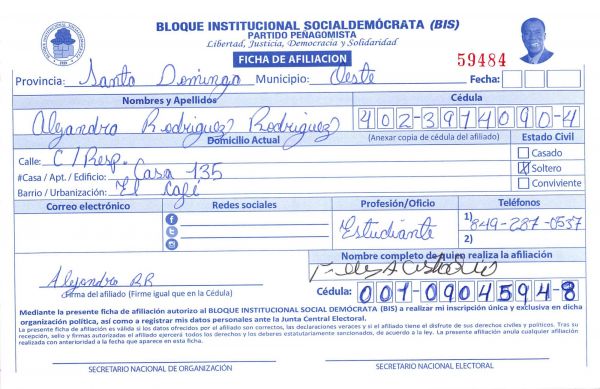 BLOQUE INSTITUCIONAL SOCIALDEMÓCRATA (BIS)
PARTIDO PEÑAGOMISTA
Libertad, Justicia, Democracia y Solidaridad
FICHA DE AFILIACION
59484
Provincia: Santo Domingo Municipio: Oeste Fecha:
Nombres y Apellidos Cédula
Alejandro Rodriguez Rodriguez 402-3974090-4
Domicilio Actual (Anexar copia de cédula del afiliado) Estado Civil
Calle: C/Resp. Casado
#Casa / Apt. / Edificio: Casa 135 Soltero
Barrio / Urbanización: El Café Conviviente
Correo electrónico Redes sociales Profesión/Oficio Teléfonos
Estudiante 1) 849-287-0537
2)
Nombre completo de quien realiza la afiliación
Alejandro RR
Firma del afiliado (Firme igual que en la Cédula) Cédula: 001-0904594-8
Mediante la presente ficha de afiliación autorizo al BLOQUE INSTITUCIONAL SOCIAL DEMÓCRATA (BIS) a realizar mi inscripción única y exclusiva en dicha
organización política, así como a registrar mis datos personales ante la Junta Central Electoral.
La presente ficha de afiliación es válida si los datos ofrecidos por el afiliado son correctos, las declaraciones veraces y si el afiliado tiene el disfrute de sus derechos civiles y políticos. Tras su
recepción, sello y firmas autorizadas el afiliado ejercerá todos los derechos y los deberes estatutariamente sancionados, de acuerdo a la ley. La presente afiliación anula cualquier afiliación
realizada con anterioridad a la fecha que aparece en esta ficha.
SECRETARIO NACIONAL DE ORGANIZACIÓN SECRETARIO NACIONAL ELECTORAL